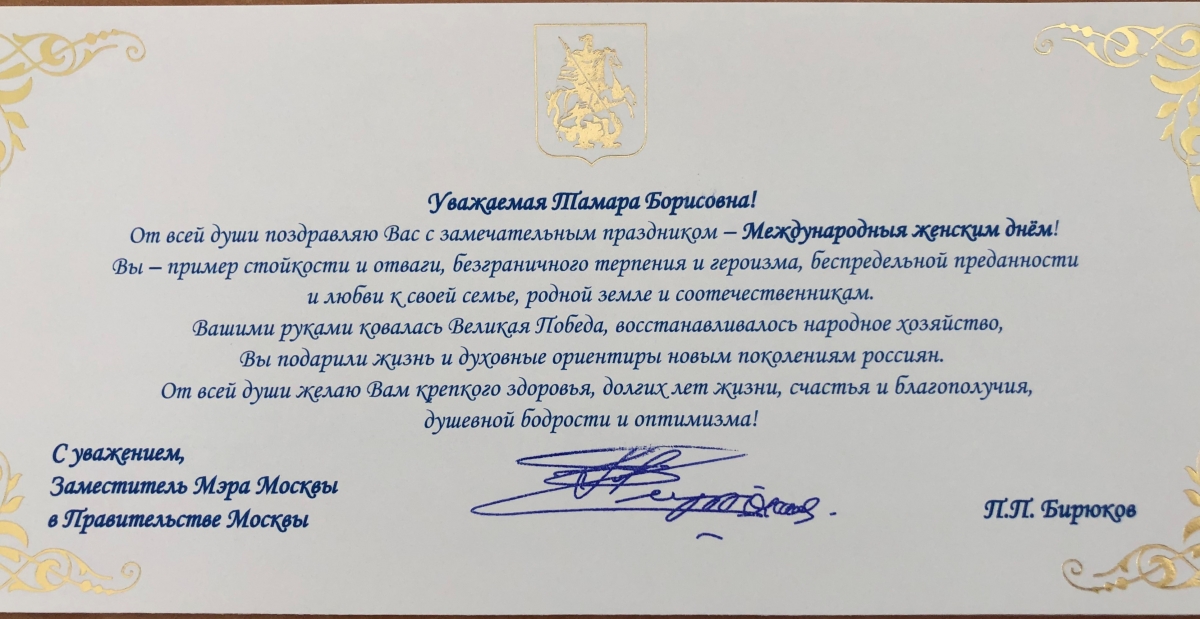 Уважаемая Тамара Борисовна!
От всей души поздравляю Вас с замечательным праздником – Международныя женским днём!
Вы – пример стойкости и отваги, безграничного терпения и героизма, беспредельной преданности
и любви к своей семье, родной земле и соотечественникам.
Вашими руками ковалась Великая Победа, восстанавливалось народное хозяйство,
Вы подарили жизнь и духовные ориентиры новым поколениям россиян.
От всей души желаю Вам крепкого здоровья, долгих лет жизни, счастья и благополучия,
душевной бодрости и оптимизма!
С уважением,
Заместитель Мэра Москвы
в Правительстве Москвы
П.П. Бирюков